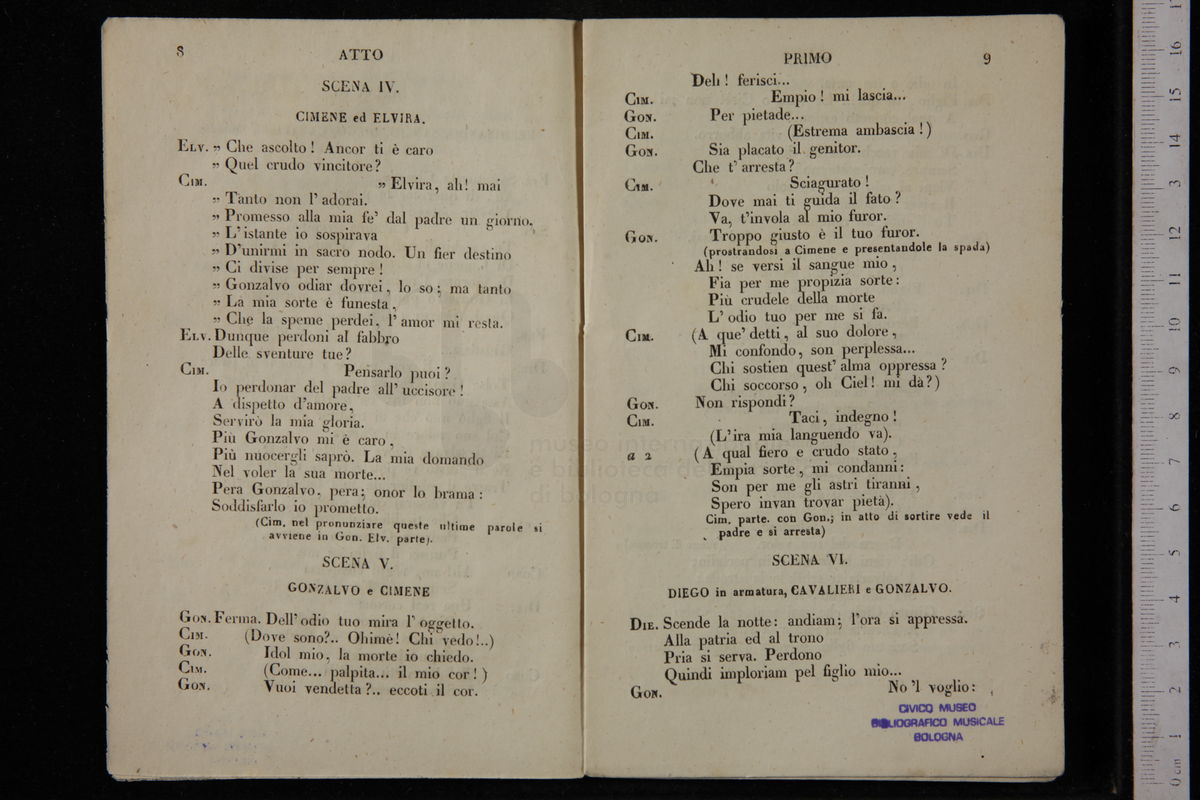 8 ATTO
SCENA IV.
CIMENE ed ELVIRA.
ELV. „ Che ascolto! Ancor ti è caro
„ Quel crudo vincitore?
CIM. „ Elvira, ah! mai
„ Tanto non l' adorai.
„ Promesso alla mia fe' dal padre un giorno,
„ L' istante io sospirava
„ D'unirmi in sacro nodo. Un fier destino
„ Ci divise per sempre!
„ Gonzalvo odiar dovrei, lo so; ma tanto
„ La mia sorte è funesta,
„ Che la speme perdei, l' amor mi resta.
ELV. Dunque perdoni al fabbro
Delle sventure tue?
CIM. Pensarlo puoi?
Io perdonar del padre all' uccisore!
A dispetto d'amore,
Servirò la mia gloria.
Più Gonzalvo mi è caro,
Più nuocergli saprò. La mia domando
Nel voler la sua morte...
Pera Gonzalvo, pera; onor lo brama:
Soddisfarlo io prometto.
(Cim. nel pronunziare queste ultime parole si
avviene in Gon. Elv. parte).
SCENA V.
GONZALVO e CIMENE
GON. Ferma. Dell' odio tuo mira l' oggetto.
CIM. (Dove sono?.. Ohimè! Chi vedo!..)
GON. Idol mio, la morte io chiedo.
CIM. (Come... palpita... il mio cor!)
GON. Vuoi vendetta?.. eccoti il cor.
PRIMO 9
Deh! ferisci...
CIM. Empio! mi lascia...
GON. Per pietade...
CIM. (Estrema ambascia!)
GON. Sia placato il genitor.
Che t' arresta?
CIM. Sciagurato!
Dove mai ti guida il fato?
Va, t'invola al mio furor.
GON. Troppo giusto è il tuo furor.
(prostrandosi a Cimene e presentandole la spada)
Ah! se versi il sangue mio,
Fia per me propizia sorte:
Più crudele della morte
L' odio tuo per me si fa.
CIM. (A que' detti, al suo dolore,
Mi confondo, son perplessa...
Chi sostien quest' alma oppressa?
Chi soccorso, oh Ciel! mi dà?)
GON. Non rispondi?
CIM. Taci, indegno!
(L'ira mia languendo va).
a 2 (A qual fiero e crudo stato,
Empia sorte, mi condanni:
Son per me gli astri tiranni,
Spero invan trovar pietà).
Cim. parte. con Gon.; in atto di sortire vede il
padre e si arresta)
SCENA VI.
DIEGO in armatura, CAVALIERI e GONZALVO.
DIE. Scende la notte: andiam; l'ora si appressa.
Alla patria ed al trono
Pria si serva. Perdono
Quindi imploriam pel figlio mio...
GON. No 'l voglio:
CIVICO MUSEO
BIBLIOGRAFICO MUSICALE
BOLOGNA